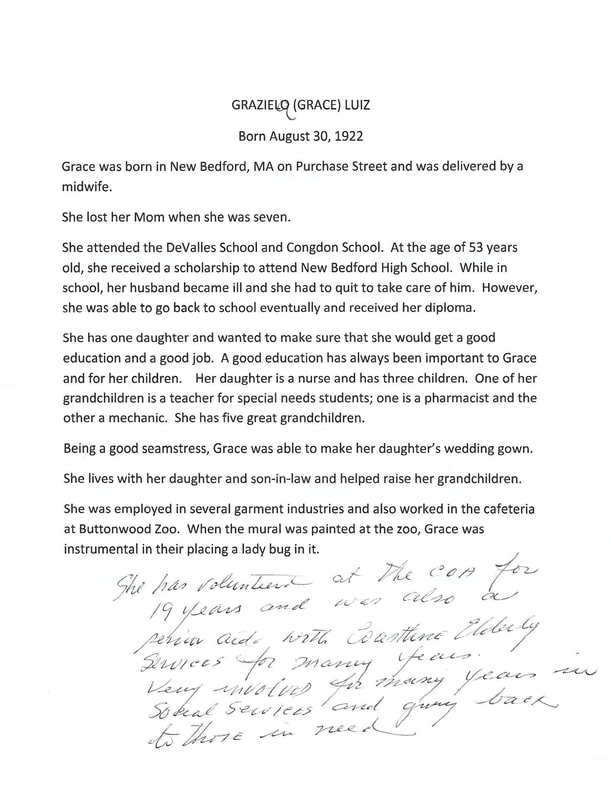 GRAZIELO (GRACE) LUIZ
Born August 30, 1922
Grace was born in New Bedford, MA on Purchase Street and was delivered by a
midwife.
She lost her Mom when she was seven.
She attended the DeValles School and Congdon School.  At the age of 53 years
old, she received a scholarship to attend New Bedford High School.  While in
school, her husband became ill and she had to quit to take care of him.  However,
she was able to go back to school eventually and received her diploma.
She has one daughter and wanted to make sure that she would get a good
education and a good job.  A good education has always been important to Grace
and for her children.    Her daughter is a nurse and has three children.  One of her
grandchildren is a teacher for special needs students; one is a pharmacist and the
other a mechanic.  She has five great grandchildren.
Being a good seamstress, Grace was able to make her daughter's wedding gown.
She lives with her daughter and son-in-law and helped raise her grandchildren.
She was employed in several garment industries and also worked in the cafeteria
at Buttonwood Zoo.  When the mural was painted at the zoo, Grace was
instrumental in their placing a lady bug in it.
She has volunteerd at the COA for
19 years and was also a
senior aide with Coastline Elderly
Services for many years.
Very involved for many years in
Social Services and giving back
to those in need